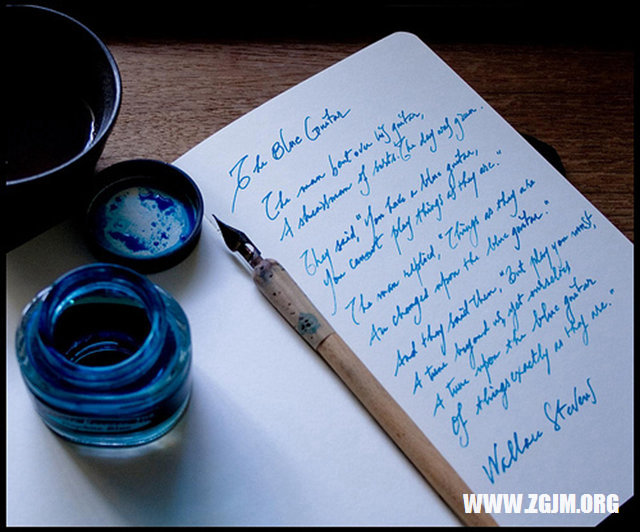 The Blue Guitar
The man bent over his guitar,
A shearsman of sorts. The day was green.
They said, "You have a blue guitar,
You cannot play things as they are."
The man replied, "Things as they are
Are changed upon the blue guitar."
And they said then, "But play you must,
A tune beyond us, yet ourselves,
A tune upon the blue guitar
Of things exactly as they are."
Wallace Stevens
WWW.ZGJM.ORG